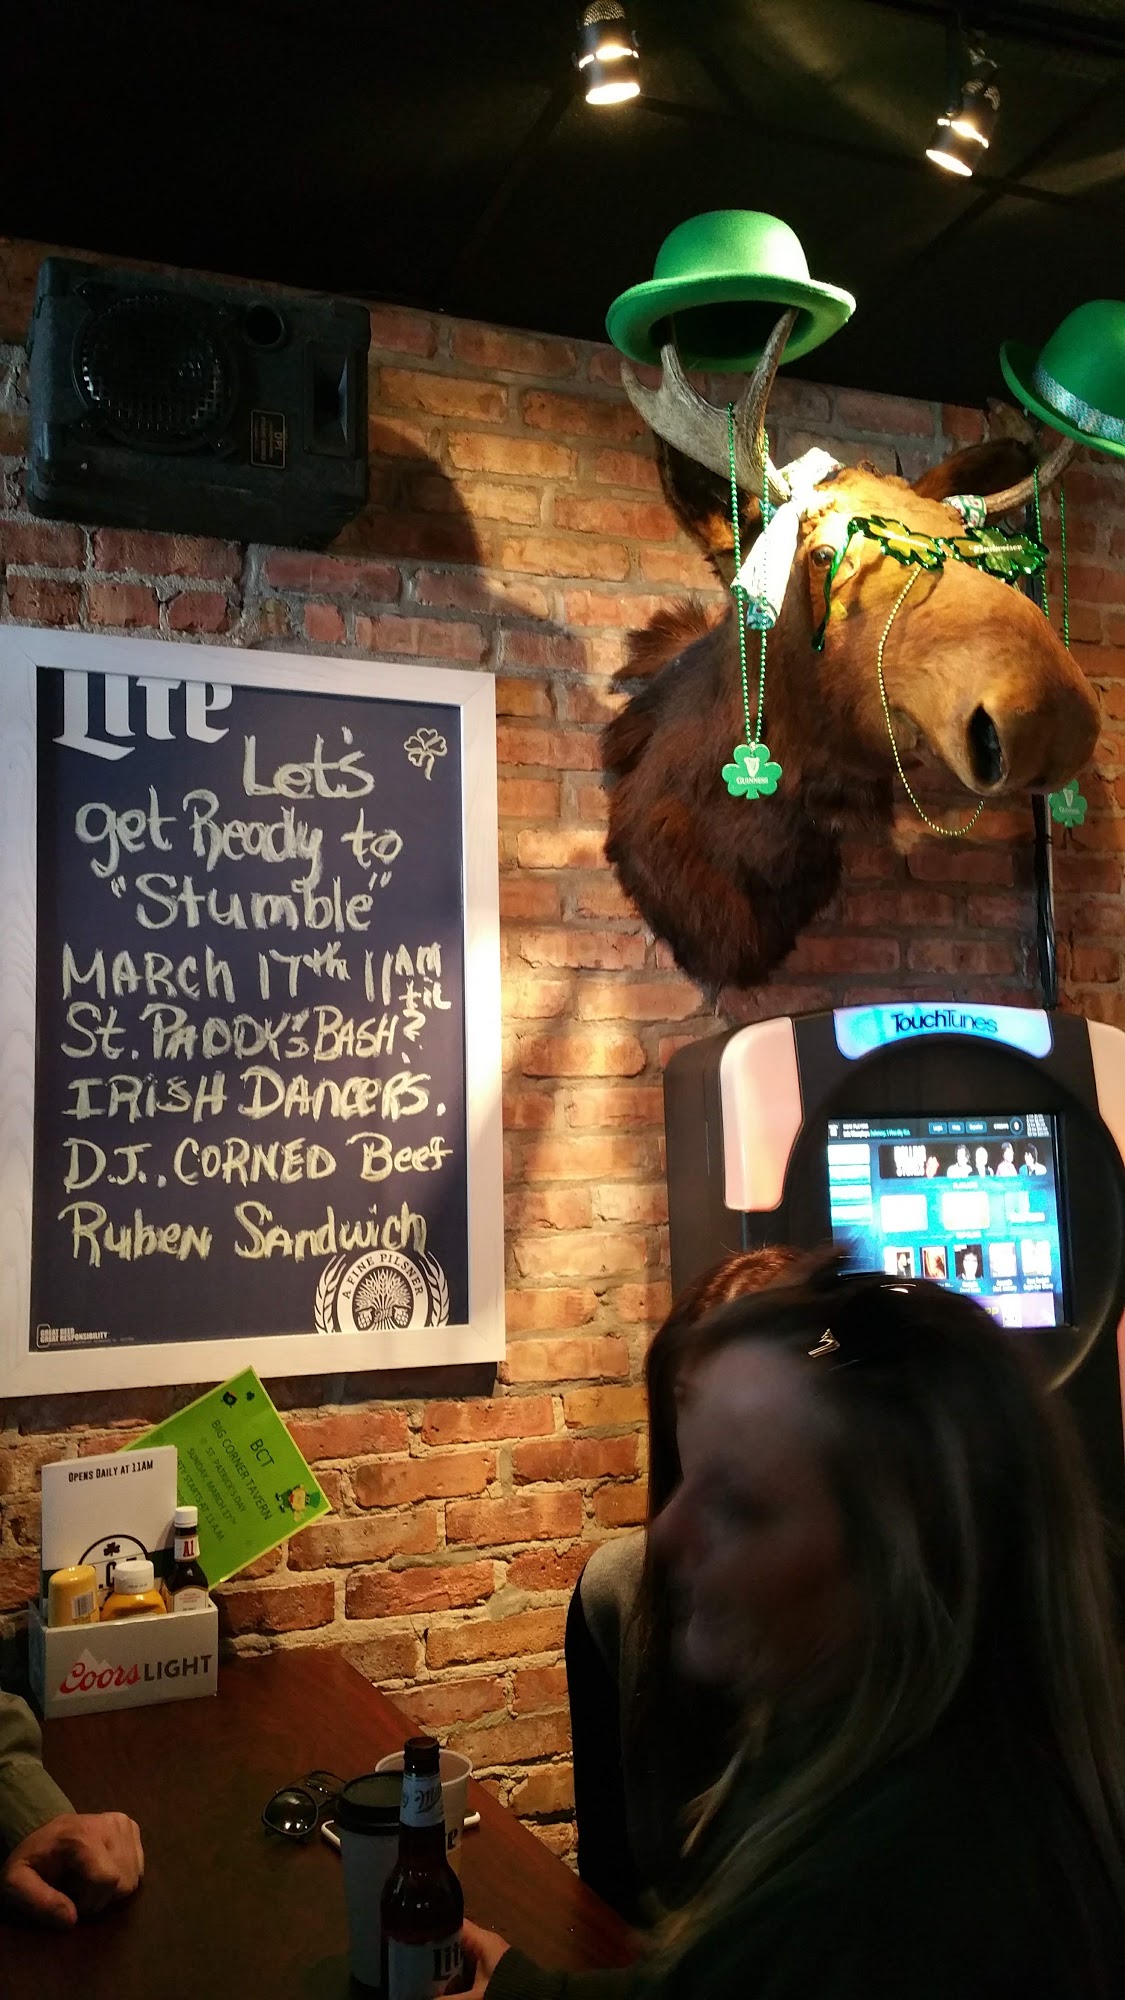 Lite
Let's
get Ready to
"Stumble"
MARCH 17th 11AM
til
St. PADDY'S BASH ?
IRISH DANCERS.
D.J.. CORNED Beef
Ruben Sandwich
A FINE PILSNER
GREAT BEER
GREAT RESPONSIBILITY
Budweiser
GUINNESS
TouchTunes
OPENS DAILY AT 11AM
BCT
BIG CORNER TAVERN
ST. PATRICK'S DAY
SUNDAY, MARCH 17th
STARTS AT 11 A.M.
A1
Coors LIGHT
Lite